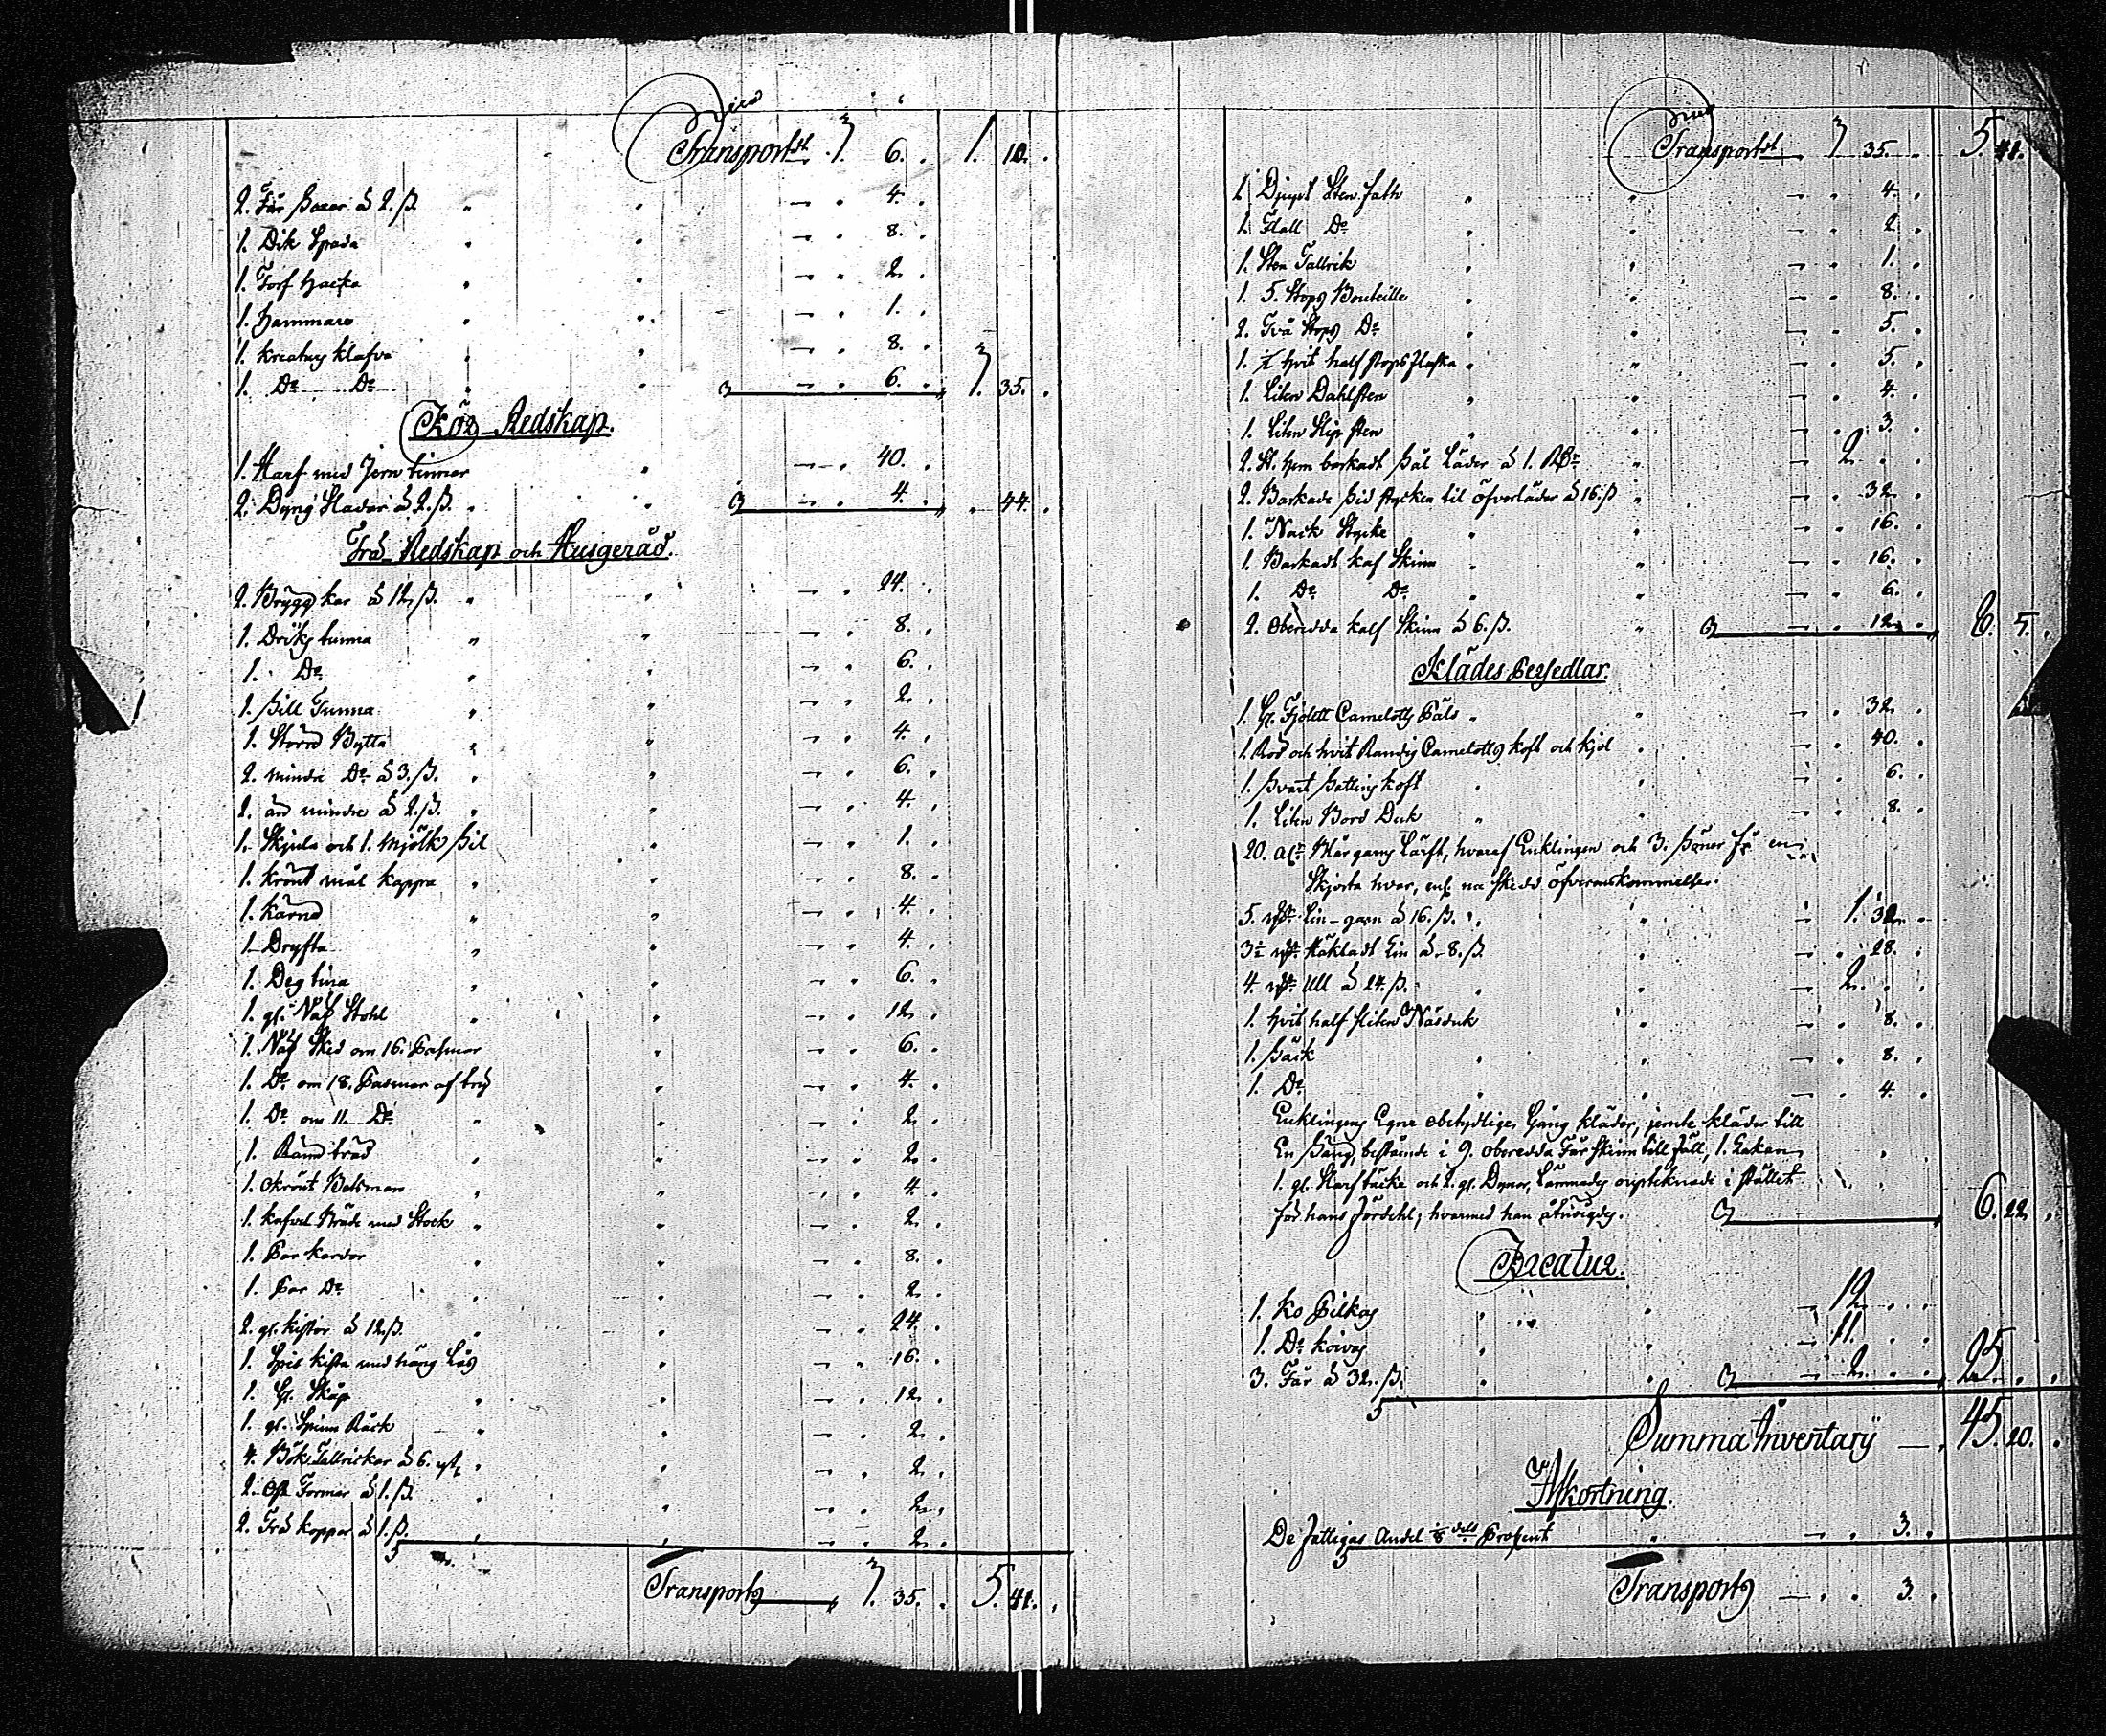 Transportdt. 1. 6. 1. 10.
2. Får Saxar à 2. ß. 4.
1. Dik Spada 8.
1. Torf Hacka 2.
1. Hammare 1.
1. Kreaturs Klafve 8.
1. Do Do 6. 1. 35.
Kör-Redskap.
1. Harf med Jern tinnar 40.
2. Dyng Slädar à 2. ß. 4. 44.
Trä-Redskap och Husgeråd.
2. Brygg kar à 12. ß. 24.
1. Driks tunna 8.
1. Do 6.
1. Sill Tunna 2.
1. Större Bytta 4.
2. mindre Do à 3. ß. 6.
2. än mindre à 2. ß. 4.
1. Skjula och 1. Mjölk Sil 1.
1. krönt mål kappe 8.
1. Kärna 4.
1. Dryfta 4.
1. Deg tina 6.
1. gl. Väf Stohl 12.
1. Väf Sked om 16. Pasmar 6.
1. Do om 18. Pasmar af trä 4.
1. Do om 11. Do 2.
1. Band träd 2.
1. Okrönt Betsman 4.
1. Kafvel Bräde med Stock 2.
1. Par kardor 8.
1. Par Do 2.
2. gl. kistor à 12. ß. 24.
1. Spis kista med häng Lås 16.
1. Gl. Skåp 12.
1. gl. Spinn Råck 2.
4. Böks Tallrickar à 6. 2.
2. Ost Formar à 1. ß. 2.
2. Trä koppar à 1. ß. 2.
Transport 7. 35. 5. 41.
Transportdt 7 35. 5. 41.
1. Djupt Sten fath 4.
1. Flatt Do 2.
1. Sten Tallrik 1.
1. 5. Stops Bouteille 8.
2. Två Stops Do 5.
1. Hvit half stops Flaska 5.
1. Liten Dahlsten 4.
1. Liten Slip sten 3.
2. St. Hem barkadt Sål Läder à 1. Rdr 2.
2. Barkade Sid stycken til öfverläder à 16. ß 32.
1. Nack Stycke 16.
1. Barkadt kalf Skinn 16.
1. Do Do 6.
2. Oberedda kalf Skinn à 6. ß. 12. 6. 5.
Klädes Persedlar.
1. Gl. Fjolett Camelotts Päls 32.
1. Röd och hvit Randig Camelotts koft och kjol 40.
1. Svart Sattins koft 6.
1. Liten Bord Duk 8.
20. Alr Blårgarns Lärft, hvaraf Enklingen och 3. Söner få en
Skjorta hvar, enl. nu skedd öfverenskommelse.
5. Lin-garn à 16. ß. 1. 32.
3½ Häkladt Lin à 8. ß. 28.
4. Ull à 24. ß. 2.
1. hvit half sliten Näsduk 8.
1. Säck 8.
1. Do 4.
Enklingens Egne obetydlige Gång kläder, jemte kläder till
En Säng, bestående i 9. oberedda Får Skinn till fäll, 1. Lakan
1. gl. täcke och 2. gl. Dynor, Lämnades oupteknade i stället
för hans Jordehl, hvarmed han åtnöigdes. 6. 22.
Kreatur.
1. Ko Pilkas 12.
1. Do Koivas 11.
3. Får à 32. ß. 2. 25.
Summa Inventarÿ 45. 20.
Afkortning.
De fattigas Andel ⅛ dels Procent 3.
Transport 3.